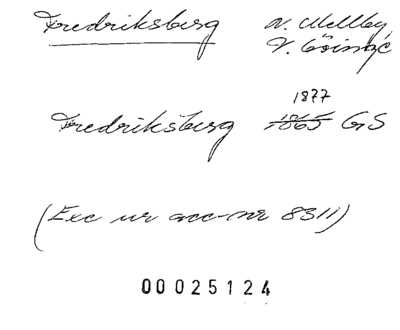 Fredriksberg N. Mellby,
V. Göinge
1877
Fredriksberg 1865 GS
(Exc ur acc-nr 8311)
00025124